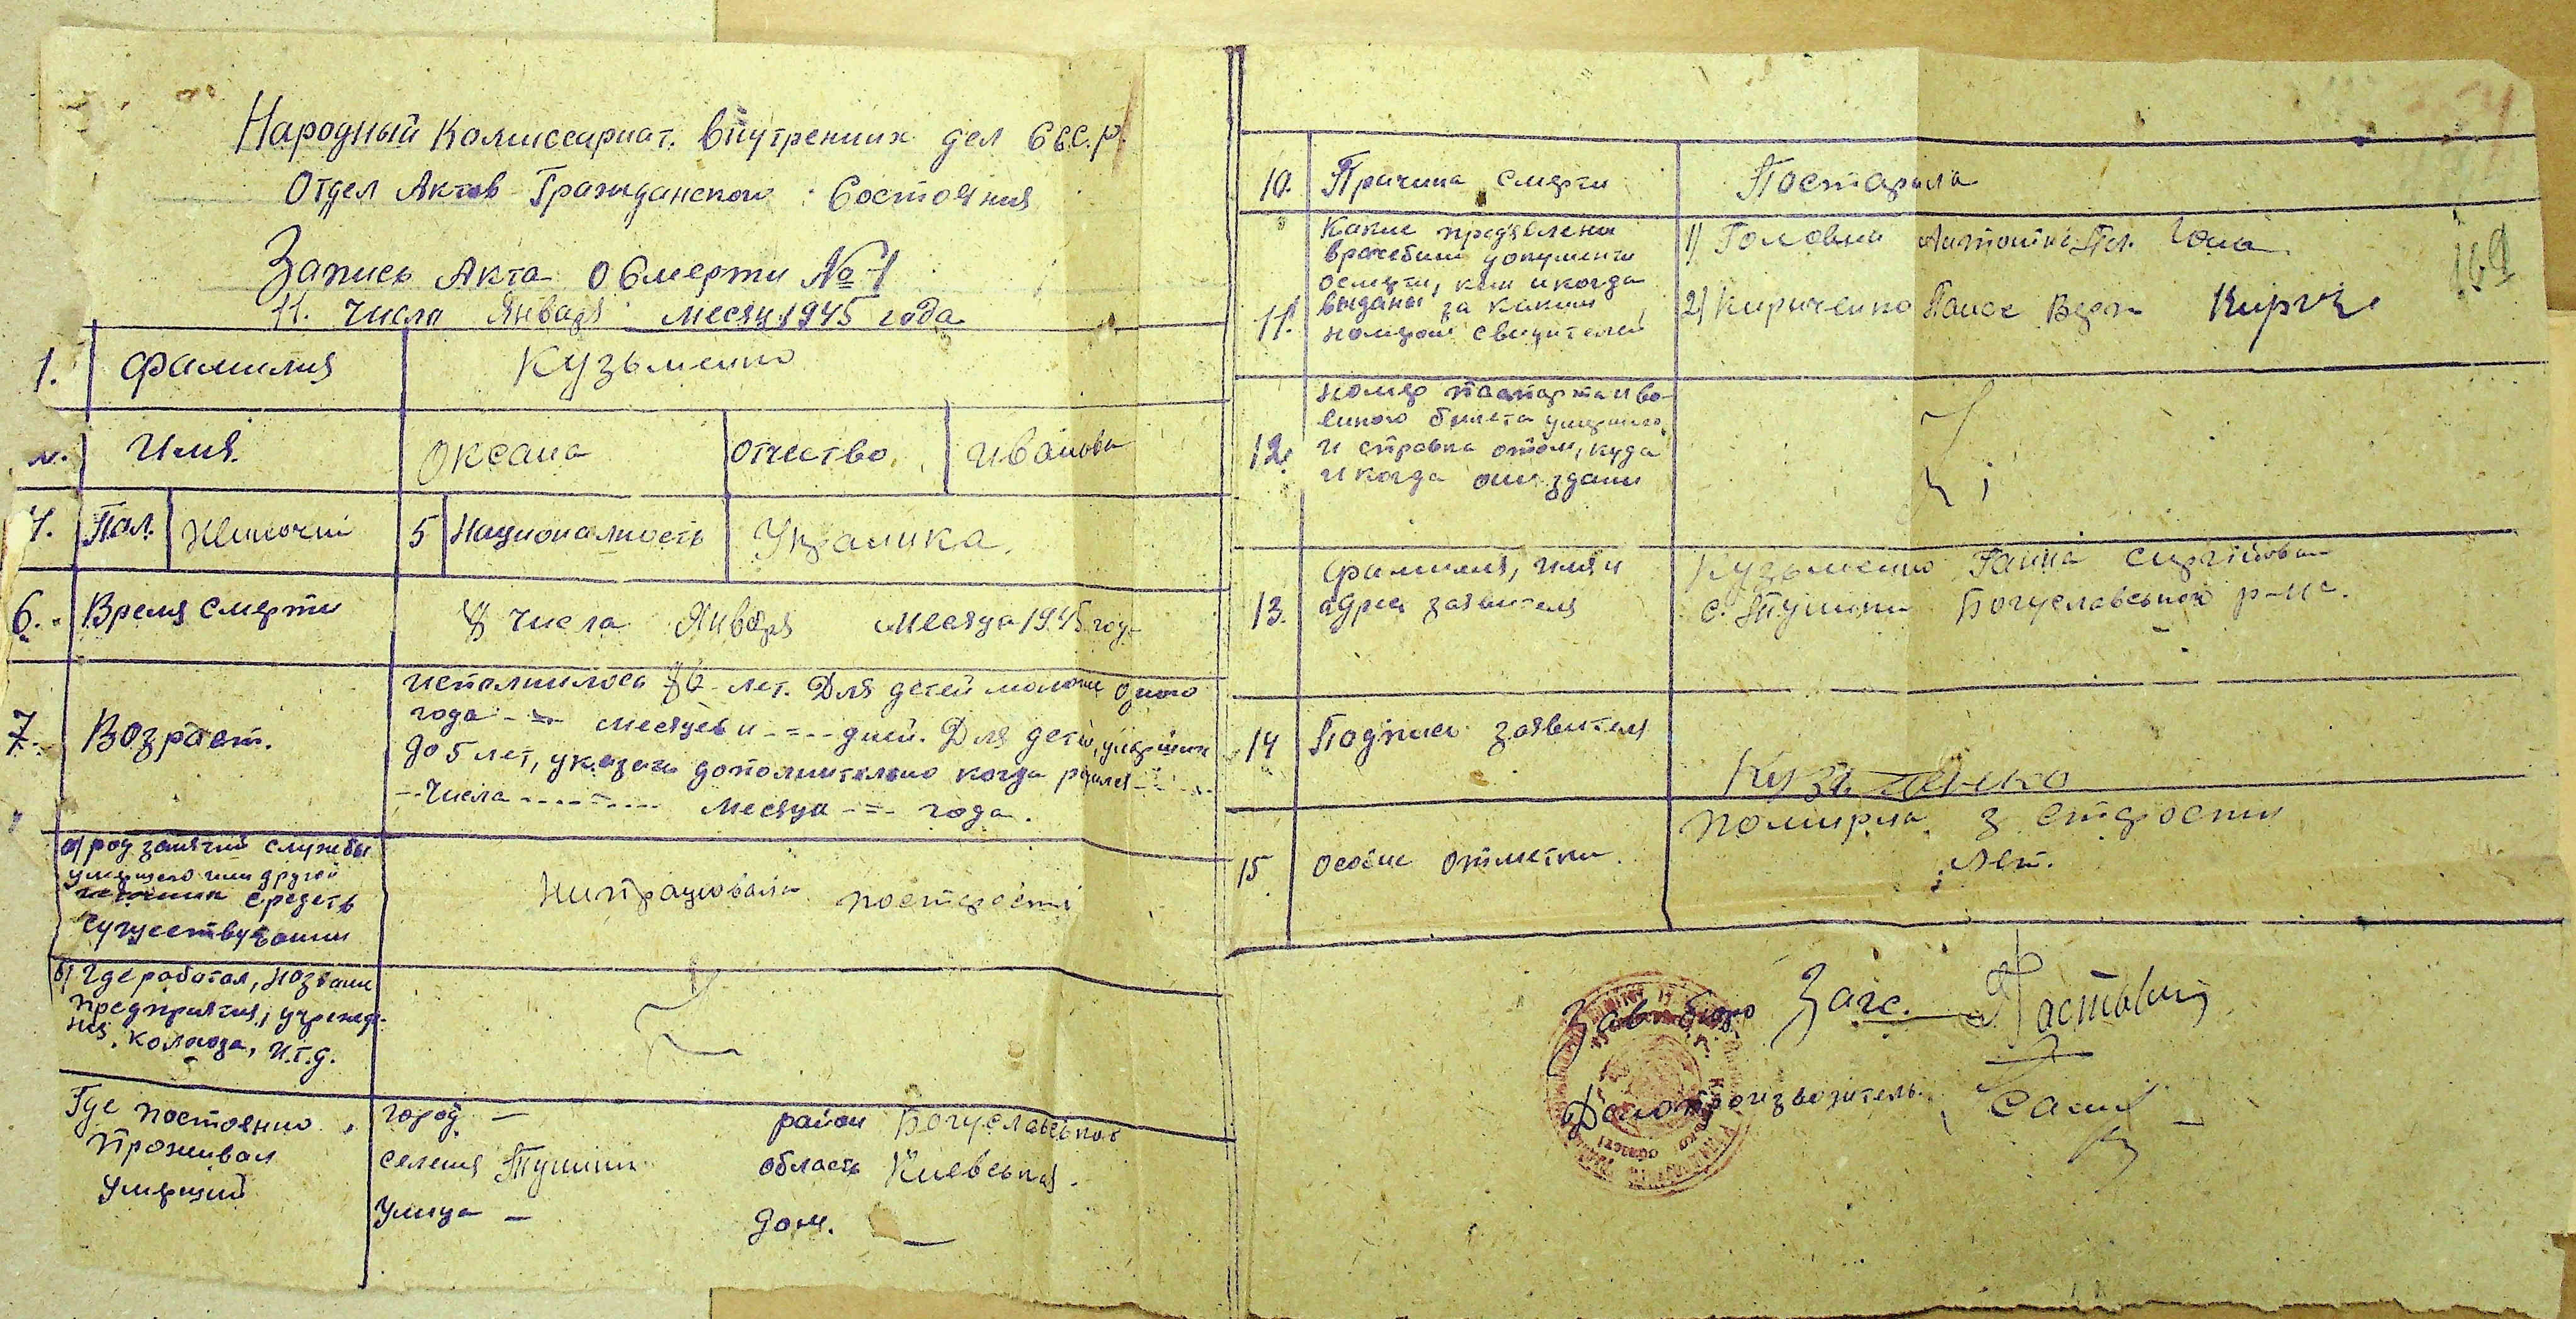 Народный Комиссариат. Внутренних дел СССР.
Отдел Актов Гражданского Состояния
Запись Акта О Смерти № 1
11. Числа Января месяц 1945 года
1. Фамилия Кузьменко
Имя. Оксана Отчество Иванова
4. Пол. Жиночий 5 Национальность Украинка.
6. Время смерти 8 Числа Января месяца 1945 год
7. Возраст. исполнилось лет. Для детей моложе одного
года - = - месяцев и - = - дней. Для детей, умерших
до 5 лет, указать дополнительно когда родился
Числа месяца - = - года.
а) род занятий службы
умершего или другой
средств
существования
Нипрацювала постарости
б) Где работал, название
предприятия, учрежде-
ния, колхоза, и.т.д.
Где постоянно проживал умерший
город — район Богуславський
селения Тушин область Киевська.
Улица — дом. —
10. Причина смерти Постарила
11. Какие предъявлены
врачебные документы
о смерти, кем и когда
выданы за каким
номером свидетелей
1) Головна
2) Кириченко Кирич
12. номер паспорта и во-
енного билета умершего
и справка о том, куда
и когда они сданы
13. Фамилия, имя и
адрес заявителя
Кузьменко Ганна Сиргіївна
с. Тушин Богуславський р-н.
14 Подпись заявителя
Кузьменко
15 Особые отметки. Помирла з старости
лет.
Зав Бюро Загс.
Делопроизводитель.
169